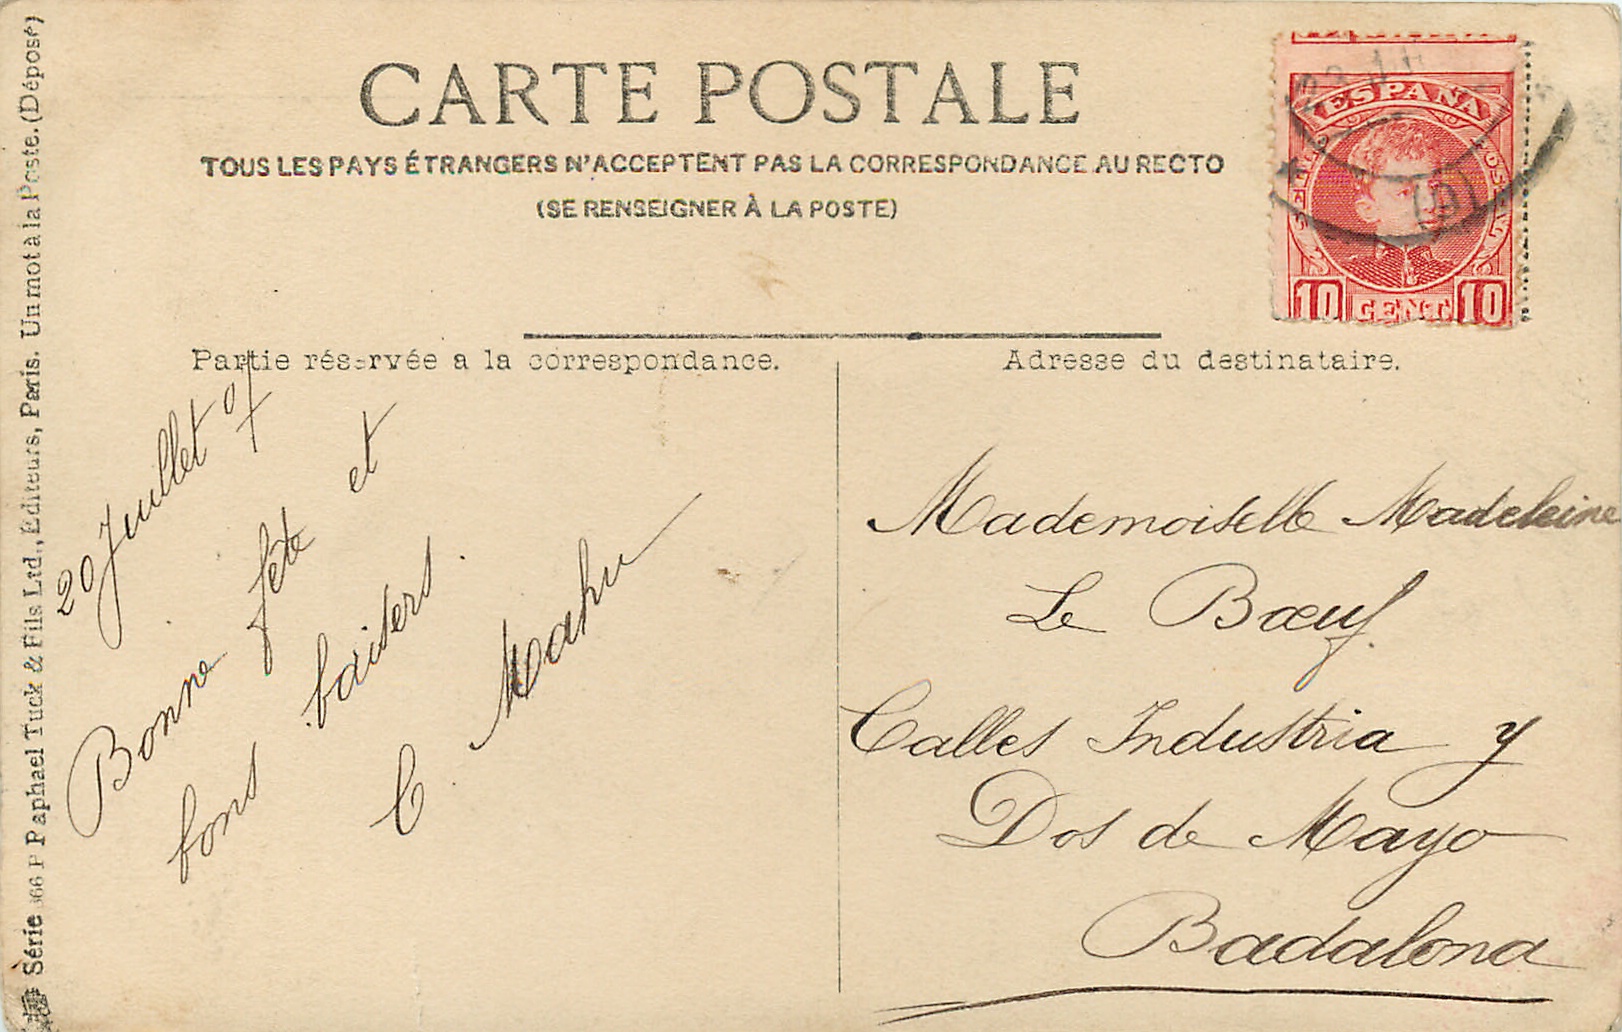 CARTE POSTALE
TOUS LES PAYS ÉTRANGERS N'ACCEPTENT PAS LA CORRESPONDANCE AU RECTO
(SE RENSEIGNER À LA POSTE)
Partie réservée a la correspondance.
Adresse du destinataire.
20 Juillet 07
Bonne fête et
bons baisers.
C. Mahu
Mademoiselle Madeleine
Le Bœuf
Calles Industria y
Dos de Mayo
Badalona
ESPAÑA
10 CENT. 10
Série 366 P Raphael Tuck & Fils Ltd., Éditeurs, Paris. Un mot à la Poste. (Déposé)